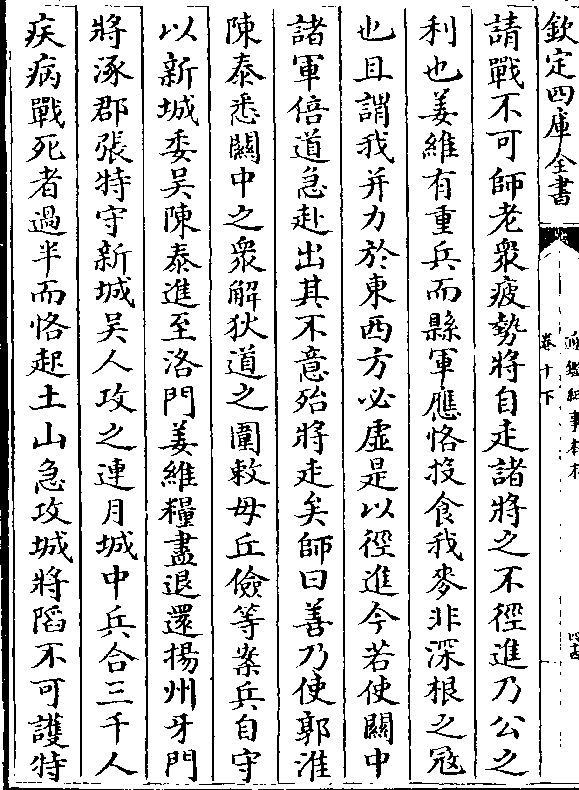 欽定四庫全書
通鑑紀事本末
卷十下
請戰不可師老衆疲勢將自走諸將之不徑進乃公之
利也姜維有重兵而縣軍應恪投食我麥非深根之寇
也且謂我并力於東西方必虛是以徑進今若使關中
諸軍倍道急赴出其不意殆將走矣師曰善乃使郭淮
陳泰悉關中之衆解狄道之圍敕毋丘儉等案兵自守
以新城委吳陳泰進至洛門姜維糧盡退還揚州牙門
將涿郡張特守新城吳人攻之連月城中兵合三千人
疾病戰死者過半而恪起土山急攻城將陷不可護特